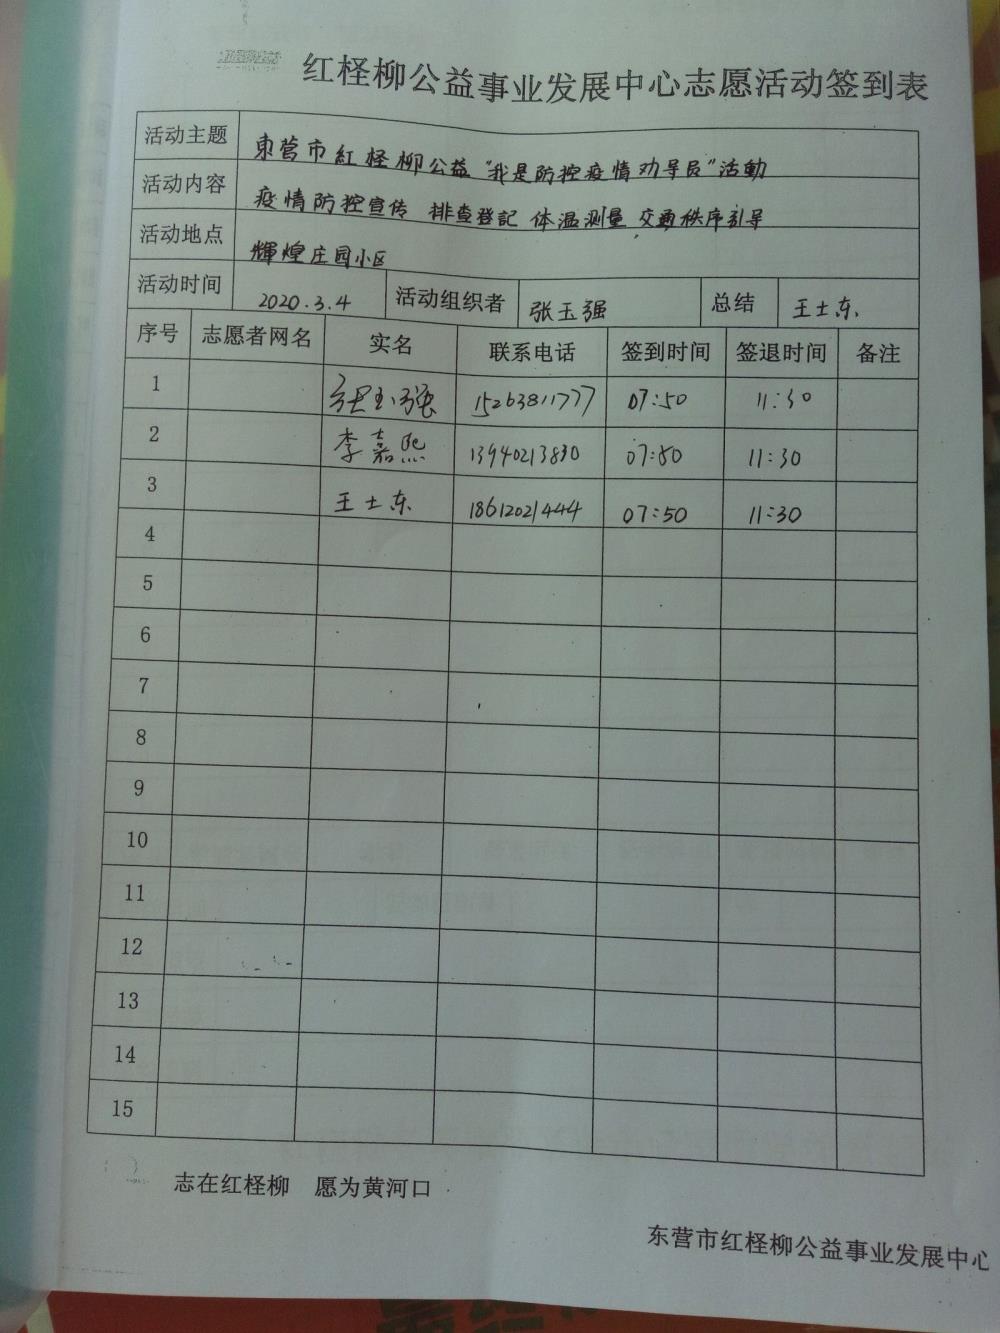 红柽柳公益事业发展中心志愿活动签到表
活动主题 東营市紅柽柳公益“我是防控疫情劝导员”活動
活动内容 疫情防控宣传 排查登記 体温测量 交通秩序引导
活动地点 輝煌庄园小区
活动时间 2020.3.4 活动组织者 张玉强 总结 王士东
序号 志愿者网名 实名 联系电话 签到时间 签退时间 备注
1 张玉强 15263811777 07:50 11:30
2 李嘉熙 13940213830 07:50 11:30
3 王士东 18612021444 07:50 11:30
4
5
6
7
8
9
10
11
12
13
14
15
志在红柽柳 愿为黄河口
东营市红柽柳公益事业发展中心